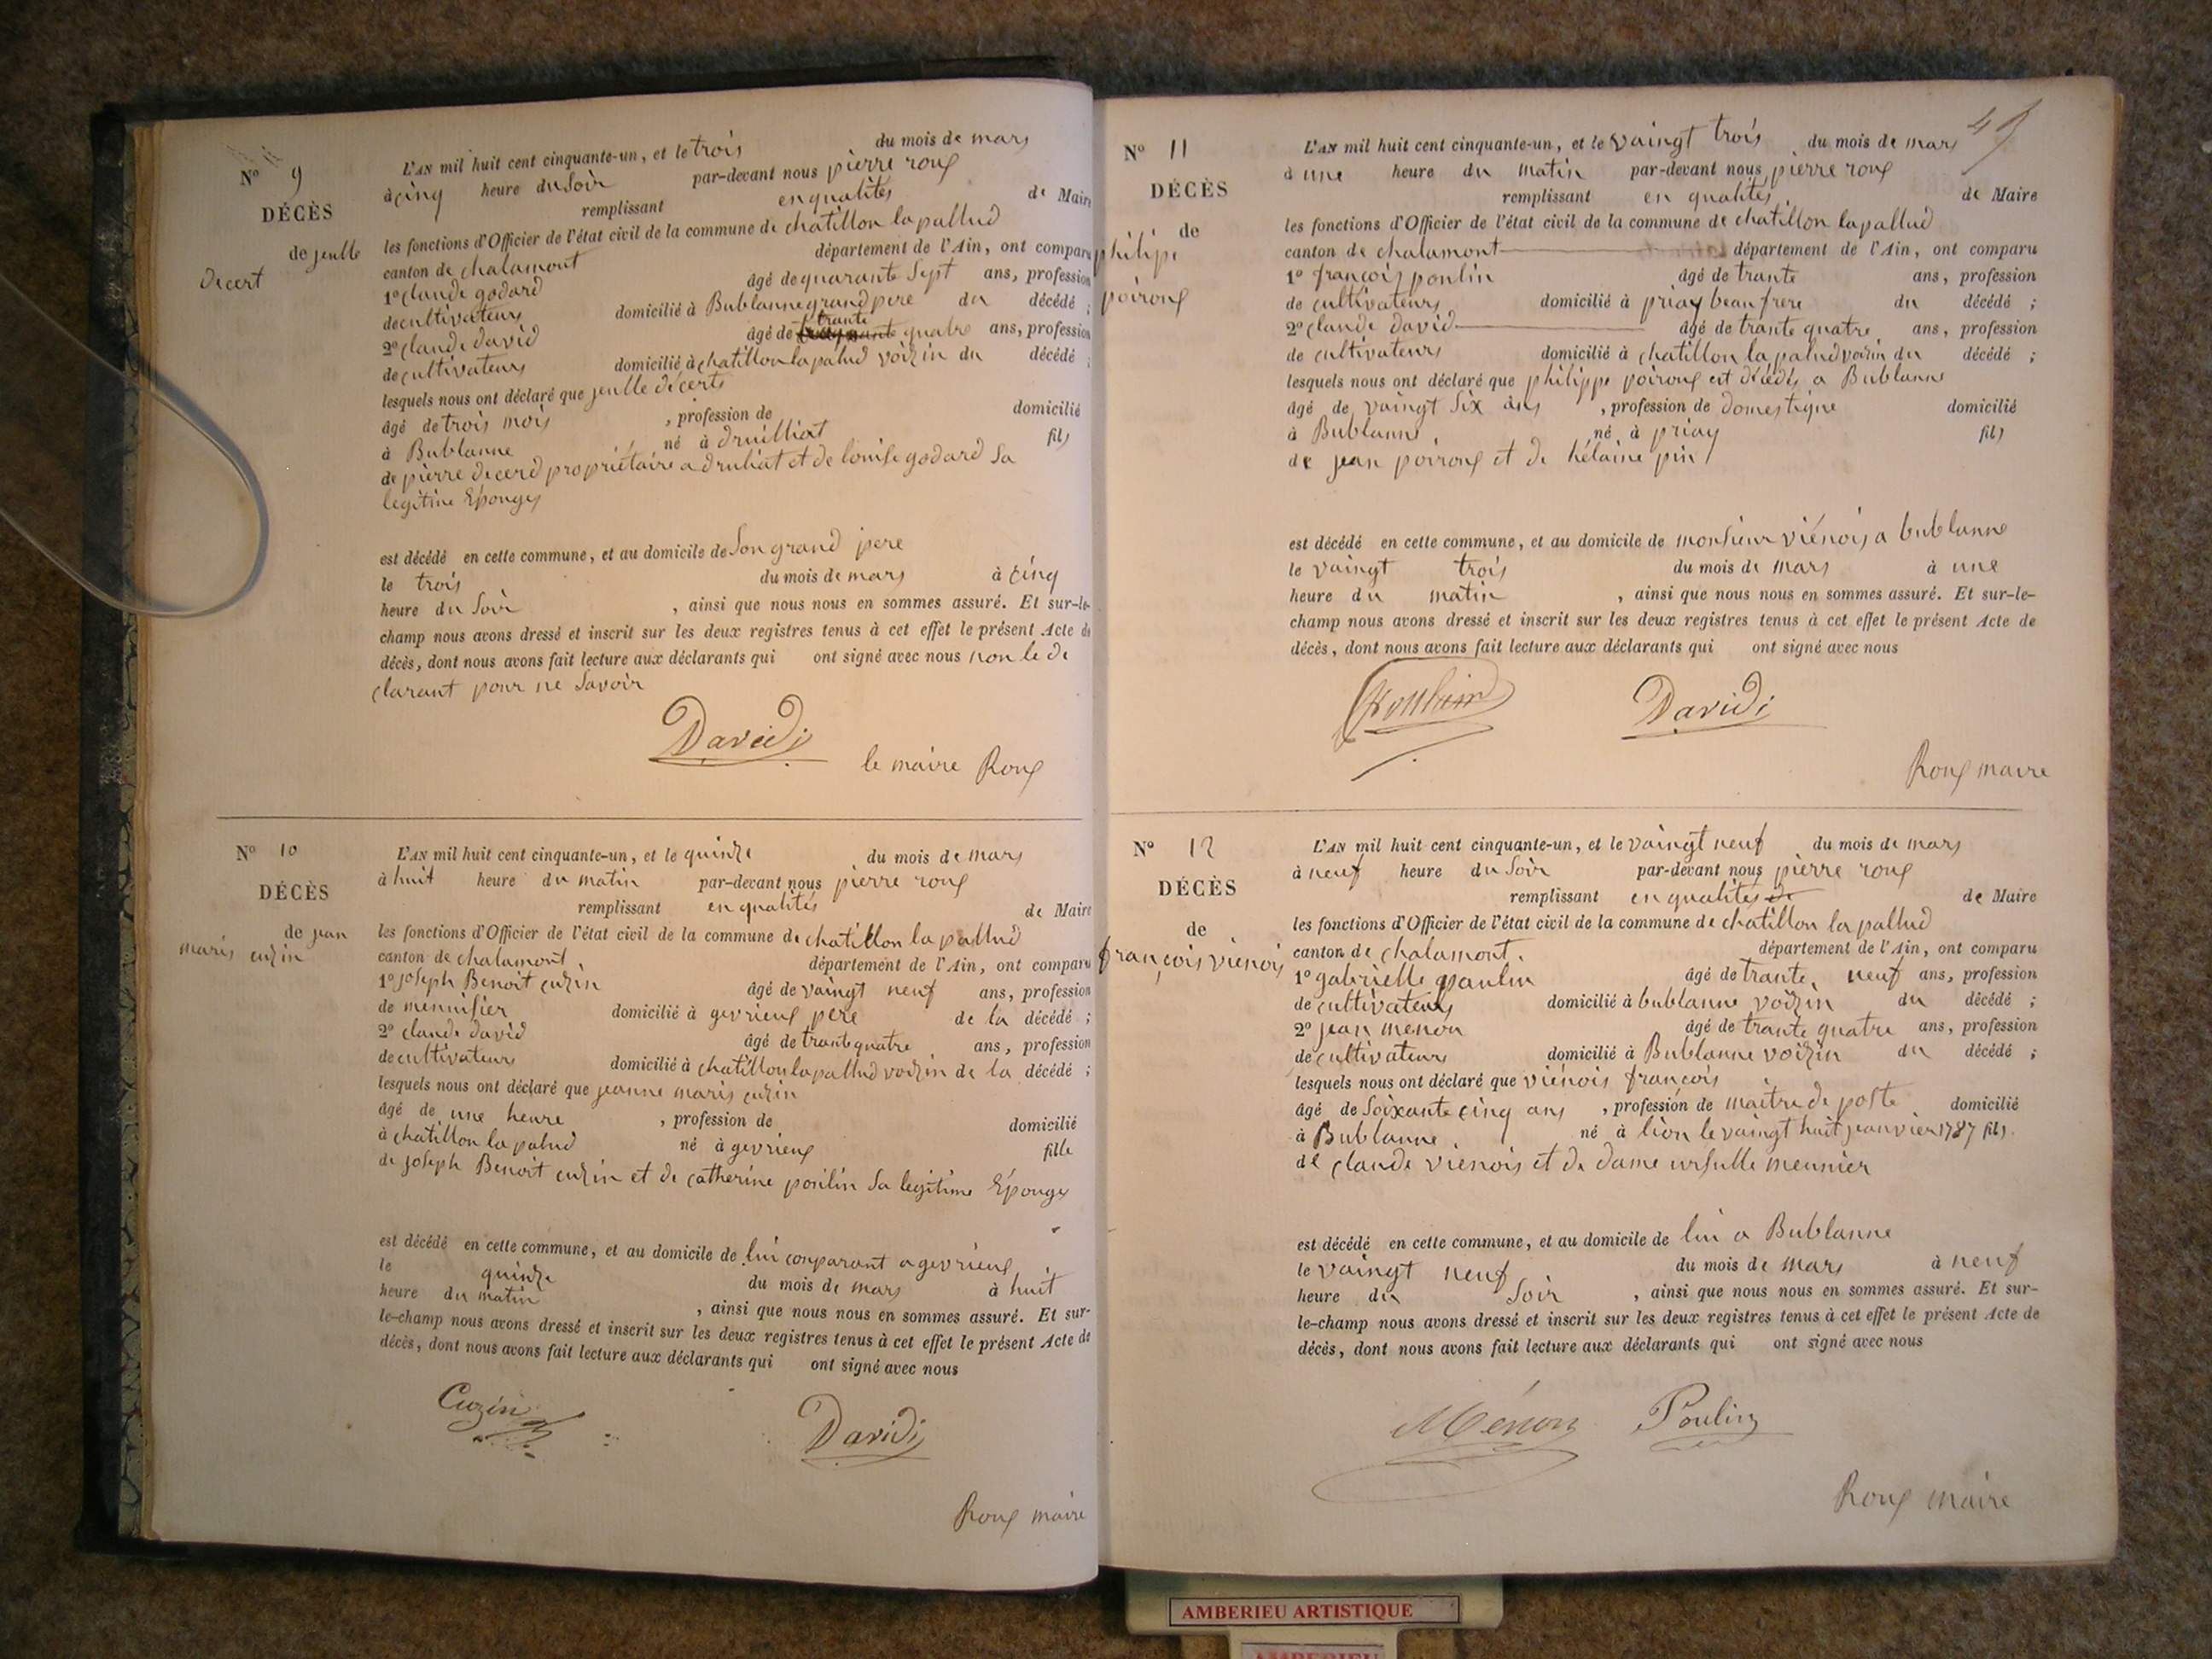 N° 9
DÉCÈS
de jeulle
decert
L'AN mil huit cent cinquante-un, et le trois du mois de mars
à cinq heure du Soir par-devant nous pierre roux
remplissant en qualités de Maire
les fonctions d'Officier de l'état civil de la commune de chatillon lapallud
canton de chalamont département de l'Ain, ont comparu
1° claude godard âgé de quarante Sept ans, profession
de cultivateurs domicilié à Bublanne grand pere du décédé ;
2° claude david âgé de trante quatre ans, profession
de cultivateurs domicilié à chatillon la palud voizin du décédé ;
lesquels nous ont déclaré que jeulle décerts
âgé de trois mois , profession de domicilié
à Bublanne né à druilliat fils
de pierre decerd propriétaire a druliat et de louise godard Sa
legitime Epouges
est décédé en cette commune, et au domicile de Son grand pere
le trois du mois de mars à cinq
heure du Soir , ainsi que nous nous en sommes assuré. Et sur-le-
champ nous avons dressé et inscrit sur les deux registres tenus à cet effet le présent Acte de
décès, dont nous avons fait lecture aux déclarants qui ont signé avec nous non le de
clarant pour ne Savoir
David
le maire Roux
N° 10
DÉCÈS
de jean
maris cuzin
L'AN mil huit cent cinquante-un, et le quinze du mois de mars
à huit heure du matin par-devant nous pierre roux
remplissant en qualités de Maire
les fonctions d'Officier de l'état civil de la commune de chatillon la pallud
canton de chalamont, département de l'Ain, ont comparu
1° joseph Benoit cuzin âgé de vaingt neuf ans, profession
de menuisier domicilié à gevrieux pere de la décédé ;
2° claude david âgé de trante quatre ans, profession
de cultivateurs domicilié à chatillon la pallud voizin de la décédé ;
lesquels nous ont déclaré que jeanne maris cuzin
âgé de une heure , profession de domicilié
à chatillon la palud né à gevrieux fille
de joseph Benoit cuzin et de catherine poulin Sa legitime Epouge
est décédé en cette commune, et au domicile de lui conparant a gevrieux
le quinze du mois de mars à huit
heure du matin , ainsi que nous nous en sommes assuré. Et sur-
le-champ nous avons dressé et inscrit sur les deux registres tenus à cet effet le présent Acte de
décès, dont nous avons fait lecture aux déclarants qui ont signé avec nous
Cuzin
David
Roux maire
N° 11
DÉCÈS
de
philipe
poiroux
L'AN mil huit cent cinquante-un, et le vaingt trois du mois de mars
à une heure du matin par-devant nous pierre roux
remplissant en qualités de Maire
les fonctions d'Officier de l'état civil de la commune de chatillon lapallud
canton de chalamont département de l'Ain, ont comparu
1° françois poulin âgé de trante ans, profession
de cultivateurs domicilié à priay beau frere du décédé ;
2° claude david âgé de trante quatre ans, profession
de cultivateurs domicilié à chatillon la palud voizin du décédé ;
lesquels nous ont déclaré que philippe poiroux est décédé a Bublanne
âgé de vaingt Six ans , profession de domestique domicilié
à Bublanne, né à priay fils
de jean poiroux et de hélaine pin
est décédé en cette commune, et au domicile de monsieur viénois a bublanne
le vaingt trois du mois de mars à une
heure du matin , ainsi que nous nous en sommes assuré. Et sur-le-
champ nous avons dressé et inscrit sur les deux registres tenus à cet effet le présent Acte de
décès, dont nous avons fait lecture aux déclarants qui ont signé avec nous
David
Roux maire
N° 12
DÉCÈS
de
françois vienois
L'AN mil huit cent cinquante-un, et le vaingt neuf du mois de mars
à neuf heure du Soir par-devant nous pierre roux
remplissant en qualités de de Maire
les fonctions d'Officier de l'état civil de la commune de chatillon la pallud
canton de chalamont, département de l'Ain, ont comparu
1° gabrielle paulin âgé de trante neuf ans, profession
de cultivateurs domicilié à bublanne voizin du décédé ;
2° jean menon âgé de trante quatre ans, profession
de cultivateurs domicilié à Bublanne voizin du décédé ;
lesquels nous ont déclaré que viénois françois
âgé de Soixante cinq ans , profession de maitre de poste domicilié
à Bublanne, né à lion le vaingt huit jeanvier 1787 fils
de claude vienois et de dame ursulle meunier
est décédé en cette commune, et au domicile de lui a Bublanne
le vaingt neuf du mois de mars à neuf
heure du Soir , ainsi que nous nous en sommes assuré. Et sur-
le-champ nous avons dressé et inscrit sur les deux registres tenus à cet effet le présent Acte de
décès, dont nous avons fait lecture aux déclarants qui ont signé avec nous
Ménon Poulin
Roux maire
AMBERIEU ARTISTIQUE
AMBERIEU